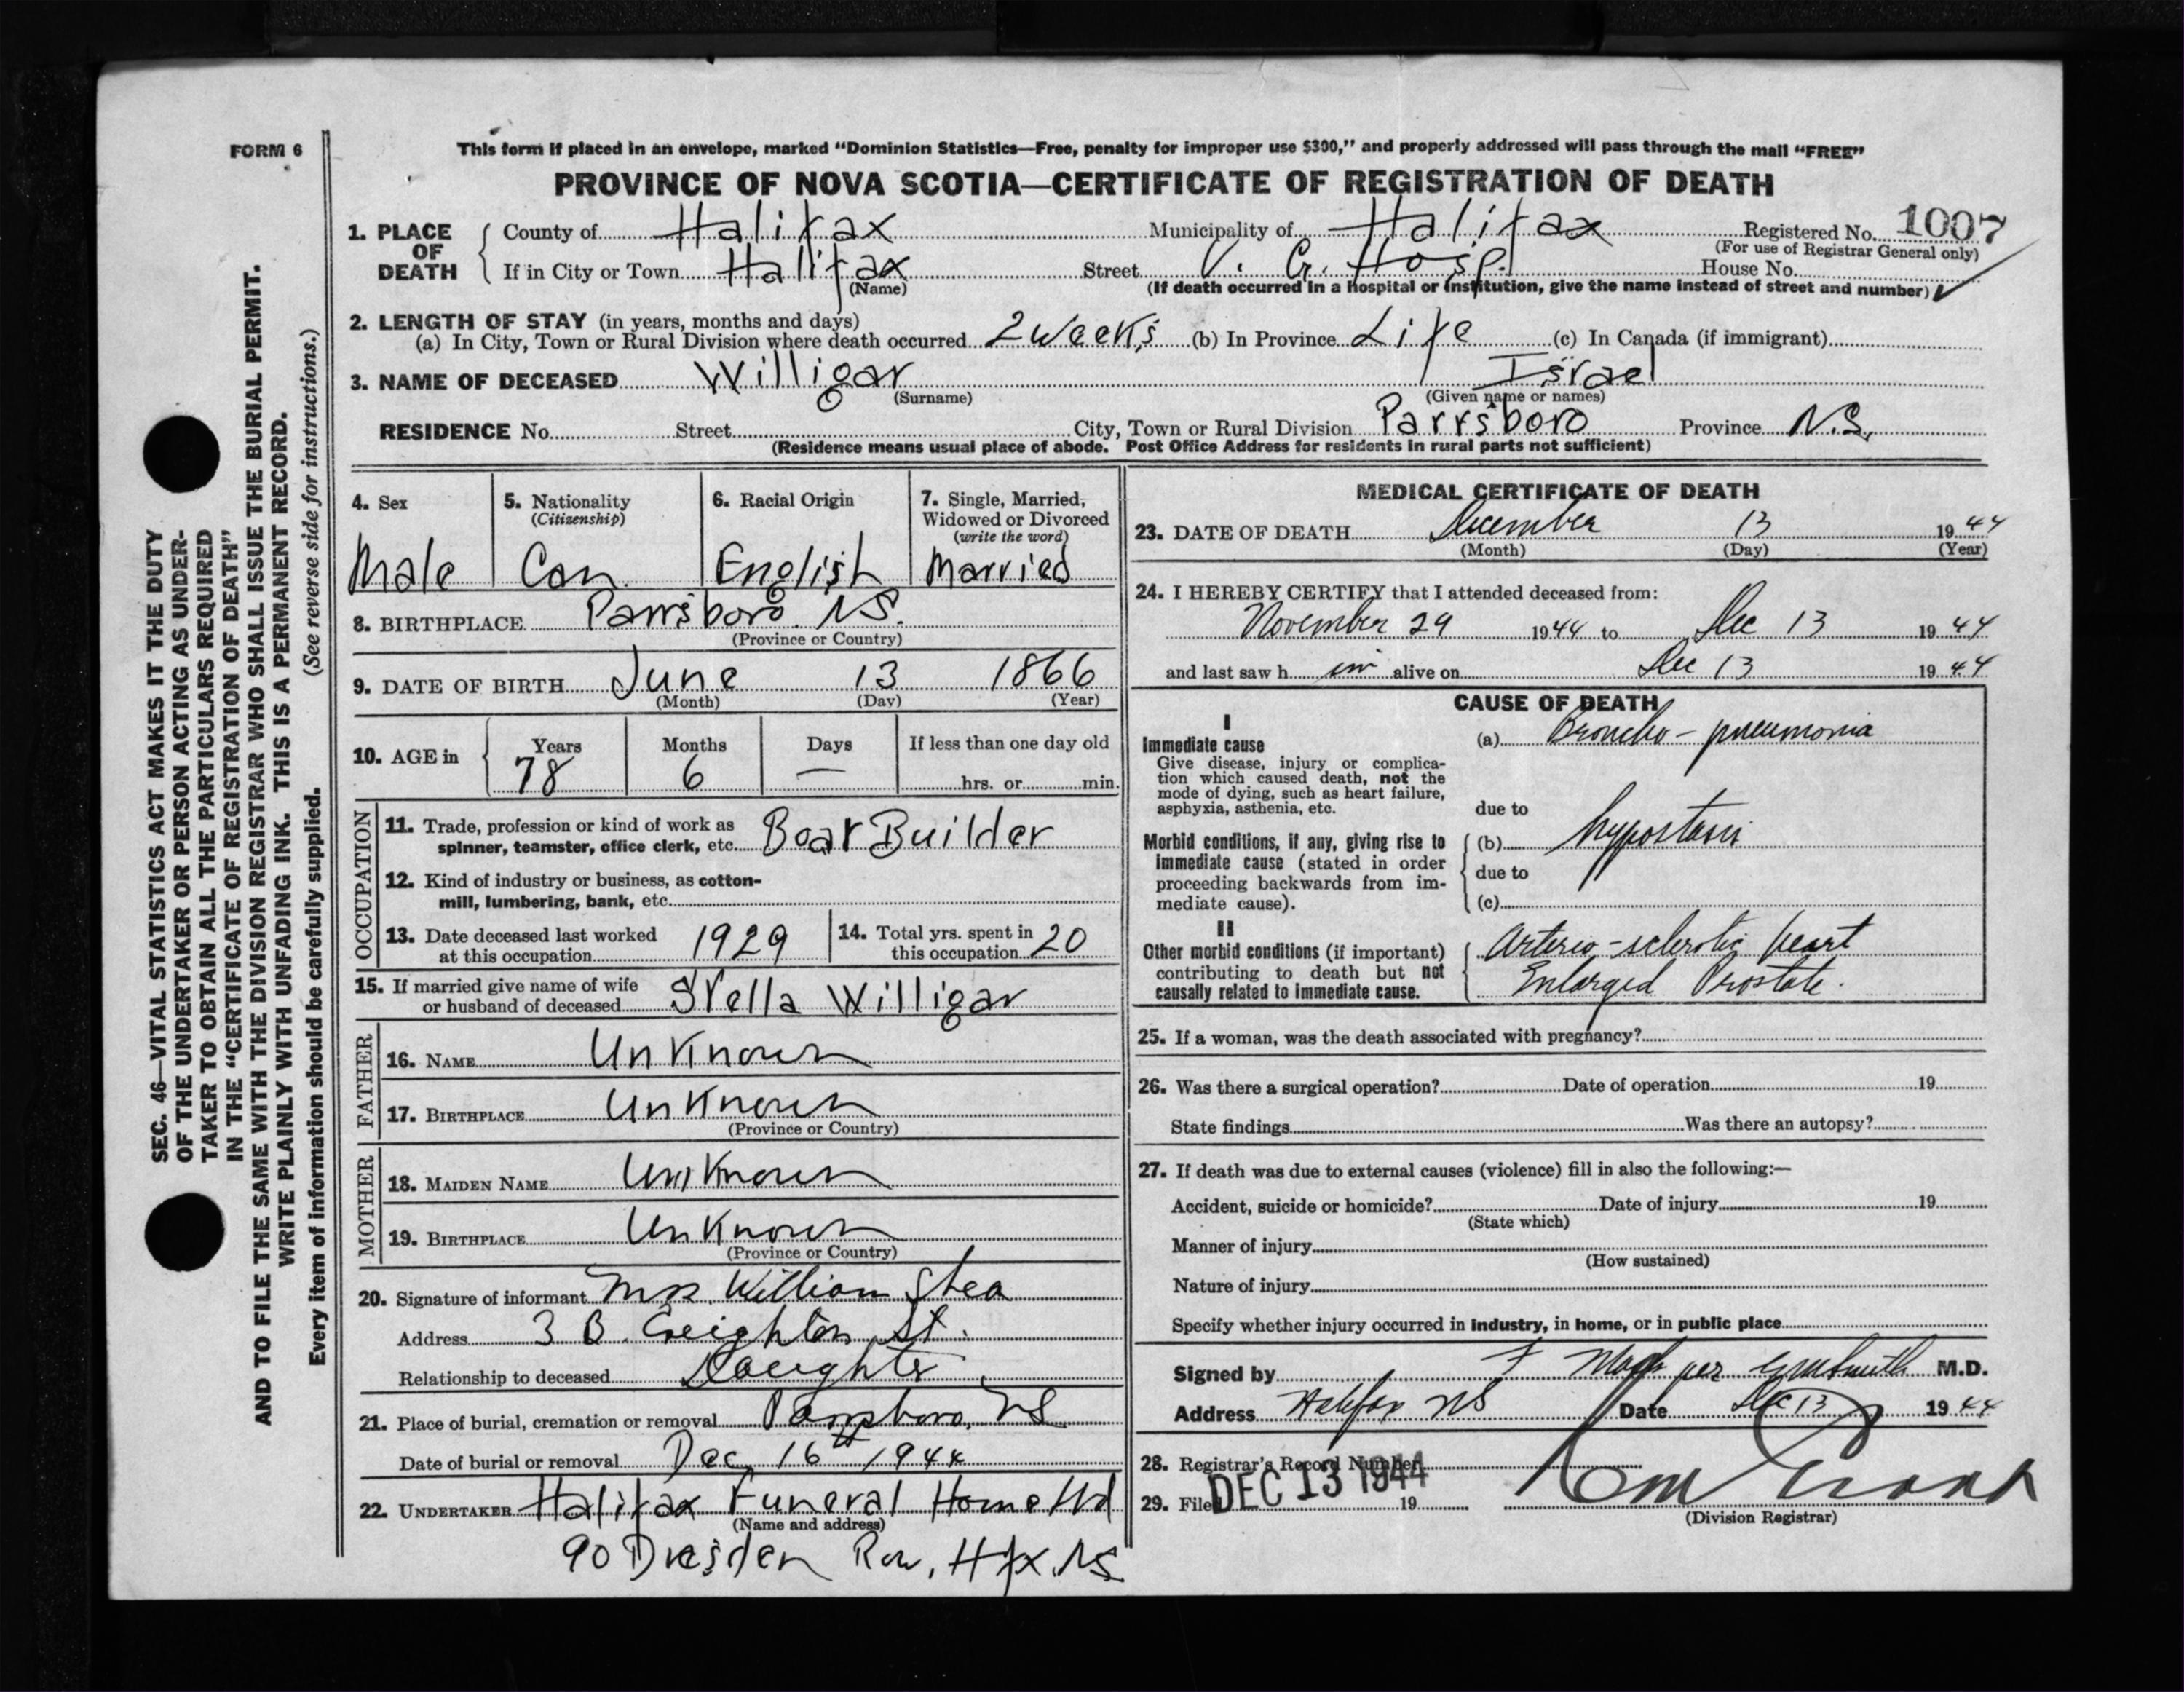 FORM 6
This form if placed in an envelope, marked "Dominion Statistics—Free, penalty for improper use $300," and properly addressed will pass through the mail "FREE"
PROVINCE OF NOVA SCOTIA—CERTIFICATE OF REGISTRATION OF DEATH
1. PLACE OF DEATH
County of Halifax Municipality of Halifax Registered No. 1007
(For use of Registrar General only)
If in City or Town Halifax Street V. G. Hosp. House No.
(Name) (If death occurred in a hospital or institution, give the name instead of street and number)
2. LENGTH OF STAY (in years, months and days)
(a) In City, Town or Rural Division where death occurred 2 Weeks (b) In Province Life (c) In Canada (if immigrant)
3. NAME OF DECEASED Willigar Israel
(Surname) (Given name or names)
RESIDENCE No. Street City, Town or Rural Division Parrsboro Province N.S.
(Residence means usual place of abode. Post Office Address for residents in rural parts not sufficient)
4. Sex
Male
5. Nationality
(Citizenship)
Can.
6. Racial Origin
English
7. Single, Married,
Widowed or Divorced
(write the word)
Married
8. BIRTHPLACE Parrsboro. N.S.
(Province or Country)
9. DATE OF BIRTH June 13 1866
(Month) (Day) (Year)
10. AGE in Years Months Days If less than one day old
78 6 — hrs. or min.
OCCUPATION
11. Trade, profession or kind of work as
spinner, teamster, office clerk, etc. Boat Builder
12. Kind of industry or business, as cotton-
mill, lumbering, bank, etc.
13. Date deceased last worked
at this occupation 1929
14. Total yrs. spent in
this occupation 20
15. If married give name of wife
or husband of deceased Stella Willigar
FATHER
16. NAME Unknown
17. BIRTHPLACE Unknown
(Province or Country)
MOTHER
18. MAIDEN NAME Unknown
19. BIRTHPLACE Unknown
(Province or Country)
20. Signature of informant Mrs. William Shea
Address 3 B. Creighton St.
Relationship to deceased Daughter
21. Place of burial, cremation or removal Parrsboro, N.S.
Date of burial or removal Dec. 16th 1944
22. UNDERTAKER Halifax Funeral Home Ltd
(Name and address)
90 Dresden Row, Hfx. N.S.
MEDICAL CERTIFICATE OF DEATH
23. DATE OF DEATH December 13 1944
(Month) (Day) (Year)
24. I HEREBY CERTIFY that I attended deceased from:
November 29 1944 to Dec 13 1944
and last saw him alive on Dec 13 1944
CAUSE OF DEATH
I
Immediate cause
Give disease, injury or complica-
tion which caused death, not the
mode of dying, such as heart failure,
asphyxia, asthenia, etc.
(a) Broncho-pneumonia
due to
Morbid conditions, if any, giving rise to
immediate cause (stated in order
proceeding backwards from im-
mediate cause).
(b) hypostasis
due to
(c)
II
Other morbid conditions (if important)
contributing to death but not
causally related to immediate cause.
Arterio-sclerotic heart
Enlarged Prostate.
25. If a woman, was the death associated with pregnancy?
26. Was there a surgical operation? Date of operation 19
State findings Was there an autopsy?
27. If death was due to external causes (violence) fill in also the following:—
Accident, suicide or homicide? Date of injury 19
(State which)
Manner of injury
(How sustained)
Nature of injury
Specify whether injury occurred in industry, in home, or in public place
Signed by F per Smith M.D.
Address Halifax NS Date Dec 13 1944
28. Registrar's Record Number
29. Filed DEC 13 1944 19
(Division Registrar)
SEC. 46—VITAL STATISTICS ACT MAKES IT THE DUTY
OF THE UNDERTAKER OR PERSON ACTING AS UNDER-
TAKER TO OBTAIN ALL THE PARTICULARS REQUIRED
IN THE "CERTIFICATE OF REGISTRATION OF DEATH"
AND TO FILE THE SAME WITH THE DIVISION REGISTRAR WHO SHALL ISSUE THE BURIAL PERMIT.
WRITE PLAINLY WITH UNFADING INK. THIS IS A PERMANENT RECORD.
Every item of information should be carefully supplied. (See reverse side for instructions.)